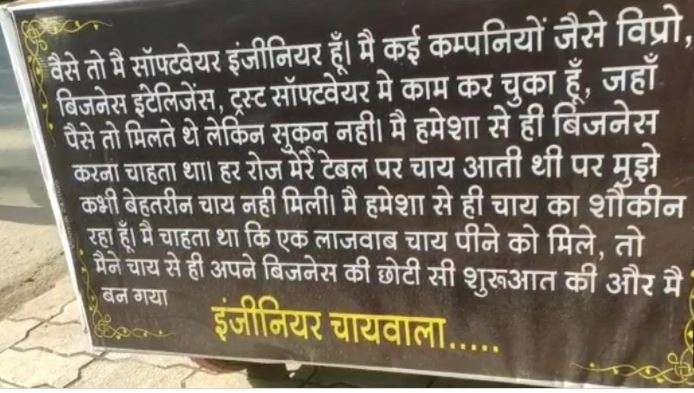 वैसे तो मै सॉफ्टवेयर इंजीनियर हूँ। मै कई कम्पनियों जैसे विप्रो,
बिजनेस इंटेलिजेंस, ट्रस्ट सॉफ्टवेयर मे काम कर चुका हूँ, जहाँ
पैसे तो मिलते थे लेकिन सुकुन नही। मै हमेशा से ही बिजनेस
करना चाहता था। हर रोज मेरे टेबल पर चाय आती थी पर मुझे
कभी बेहतरीन चाय नही मिली। मै हमेशा से ही चाय का शौकीन
रहा हूँ। मै चाहता था कि एक लाजवाब चाय पीने को मिले, तो
मैने चाय से ही अपने बिजनेस की छोटी सी शुरूआत की और मै
बन गया
इंजीनियर चायवाला.....